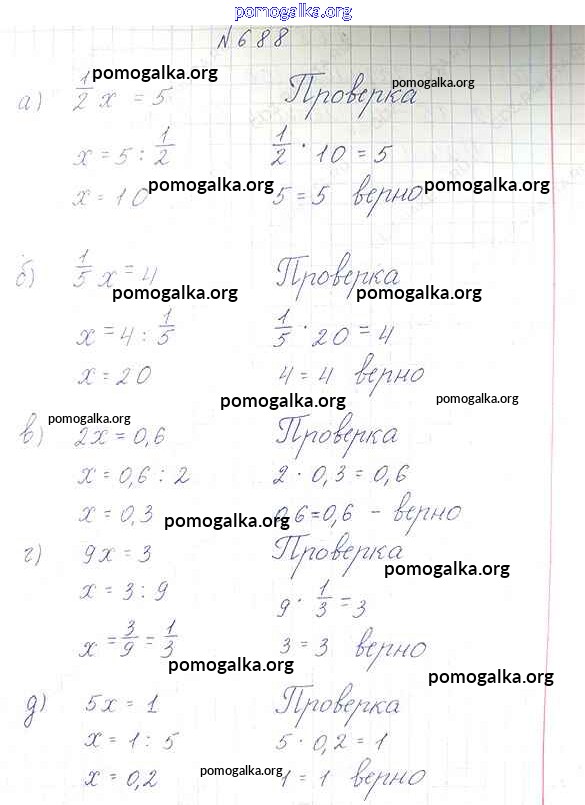 pomogalka.org
№688
pomogalka.org pomogalka.org
а) 1/2 x = 5 Проверка
x = 5 : 1/2 1/2 · 10 = 5
x = 10 pomogalka.org 5 = 5 верно pomogalka.org
б) 1/5 x = 4 Проверка
pomogalka.org pomogalka.org
x = 4 : 1/5 1/5 · 20 = 4
x = 20 4 = 4 верно
pomogalka.org pomogalka.org
pomogalka.org
в) 2x = 0,6 Проверка
x = 0,6 : 2 2 · 0,3 = 0,6
x = 0,3 pomogalka.org 0,6 = 0,6 – верно
г) 9x = 3 Проверка
pomogalka.org
x = 3 : 9 9 · 1/3 = 3
x = 3/9 = 1/3 3 = 3 верно
pomogalka.org pomogalka.org
д) 5x = 1 Проверка
x = 1 : 5 5 · 0,2 = 1
x = 0,2 pomogalka.org 1 = 1 верно